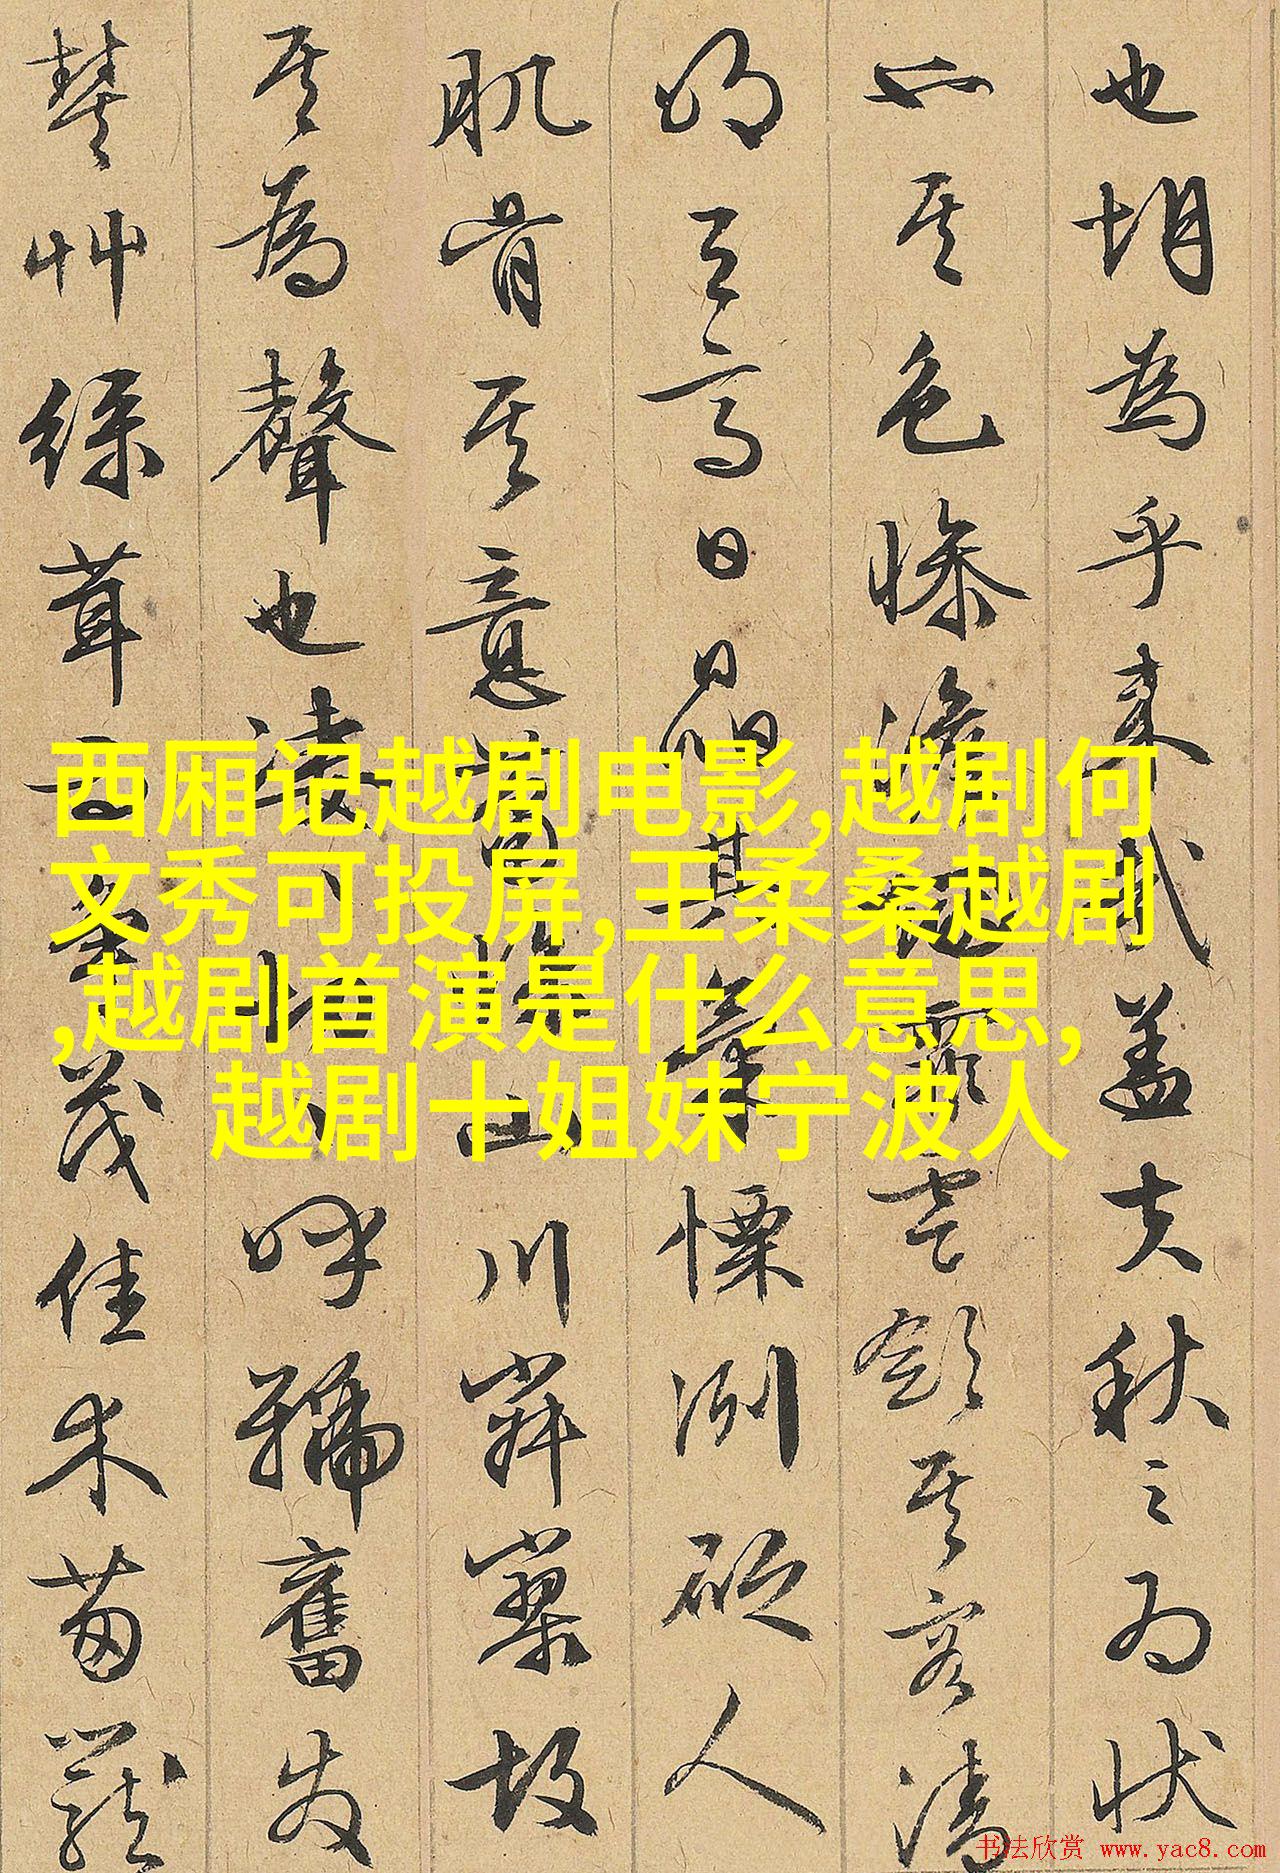 也胡為乎来哉盖夫秋之為状
也其色惨澹烟霏雲斂其容清
明天高日晶其氣慄冽砭人
肌骨其意蕭條山川寂寥故
其為聲也凄切呼號奮發
艸緑茸而争茂佳木
西厢记越剧电影,越剧何
文秀可投屏,王柔桑越剧
,越剧首演是什么意思,
越剧十姐妹宁波人
书法欣赏 www.yac8.com